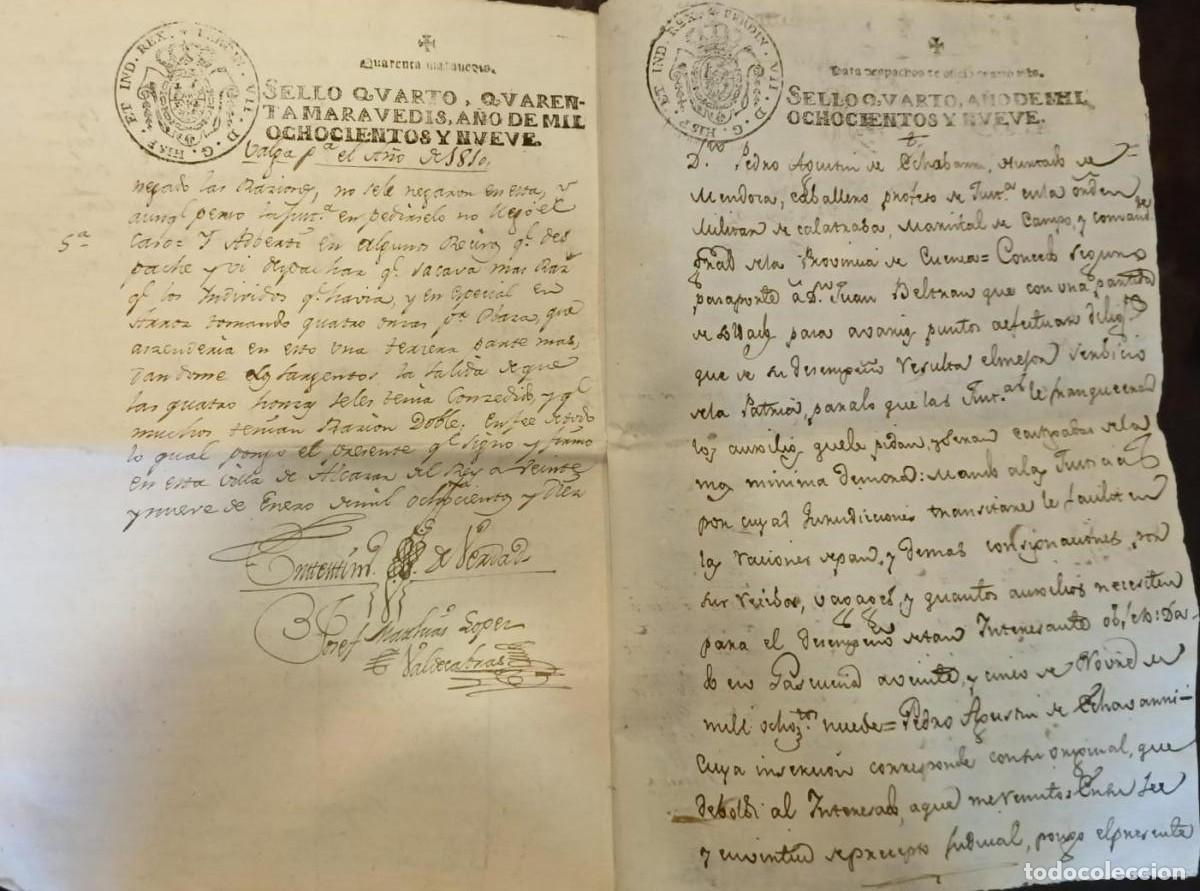 HISP. ET IND. REX. FERDIN. VII. D. G.
Quarenta maravedis.
SELLO QVARTO, QVAREN-
TA MARAVEDIS, AÑO DE MIL
OCHOCIENTOS Y NVEVE.
Valga pª el Año de 1810,
negado las Raziones, no sele negaron en esta, y
aunq! penso la Junª en pedirselo no llegó el
5ª
caso: Y Adberti en algunos Recivos q! des
pache y vi despachar q! sacava mas Raz!
q! los Individos q! havia, y en especial en
tomando quatro onzas pr Plaza, que
aszenderia en esto una terzera parte mas,
dandome los Sargentos la salida de que
las quatro honzas seles tenia Conzedido, y q!
muchos tenian Razion Doble. En fee de todo
lo qual pongo el presente q! signo y firmo
en esta Villa de Alcazar del Rey a Veinte
y nueve de Enero de mil ochozientos y Diez
En testimº de Verdad
Josef Mathias Lopez
Valdecabras
HISP. ET IND. REX. FERDIN. VII. D. G.
Para despachos de oficio quatro mrs.
SELLO QVARTO, AÑO DE MIL
OCHOCIENTOS Y NVEVE.
Dn Pedro Agustin de Echabarri, Hurtado de
Mendoza, caballero profeso de Juntª en la orden
Militar de calatraba, Mariscal de Campo, y comande
gral de la Provincia de Cuenca = Concedo seguro
pasaporte á Dn Juan Beltran que con una partida
de para varios puntos a efectuar diligs
que de su desempeño resulta el mejor serbicio
de la Patria, para lo que las Juntas le franquearan
los auxilios que le pidan, y seran castigadas de la
mas minima demora: Mando a las Justicias
por cuyas Jurisdicciones transitare le faciliten
las raciones de pan, y demas consignaciones, con
sus recibos, vagages, y quantos auxilios necesiten
para el desempeño de tan Interesante objeto: Da-
do en Gascueña a veinte, y cinco de Novre de
mill ochotos nuebe = Pedro Agustin de Echavarri =
Cuya insercion corresponde con su original, que
debolbi al Interesado, a que me remito: En su fee
y en virtud de precepto Judicial, pongo el presente
todocoleccion